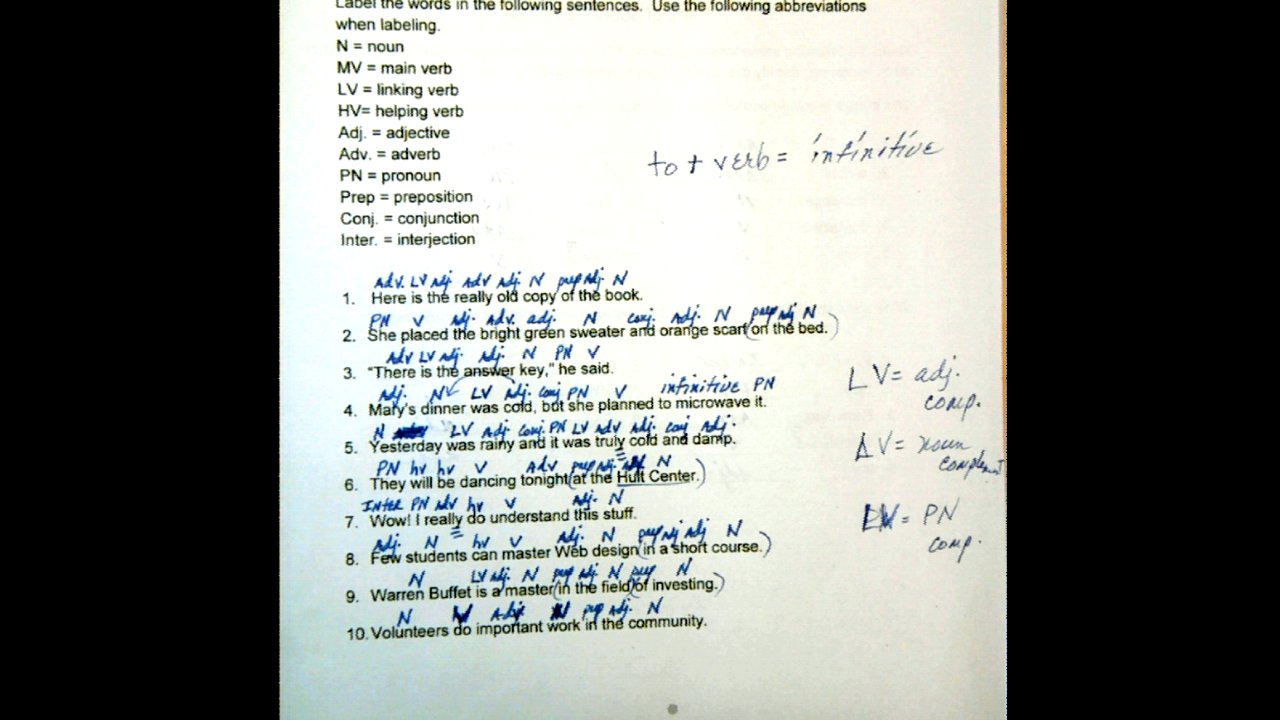 Label the words in the following sentences. Use the following abbreviations
when labeling.
N = noun
MV = main verb
LV = linking verb
HV= helping verb
Adj. = adjective
Adv. = adverb
PN = pronoun
Prep = preposition
Conj. = conjunction
Inter. = interjection
to + verb = infinitive
Adv. LV Adj. Adv Adj. N prep Adj. N
1. Here is the really old copy of the book.
PN V Adj. Adv. adj. N conj. Adj. N prep Adj N
2. She placed the bright green sweater and orange scarf (on the bed.)
Adv LV Adj. Adj. N PN V
3. “There is the answer key,” he said.
Adj. N LV Adj. conj PN V infinitive PN
4. Mary's dinner was cold, but she planned to microwave it.
N LV Adj. conj. PN LV Adv Adj. conj Adj.
5. Yesterday was rainy and it was truly cold and damp.
PN hv hv V Adv prep Adj. N
6. They will be dancing tonight (at the Hult Center.)
Inter PN adv hv V Adj. N
7. Wow! I really do understand this stuff.
Adj. N hv V Adj. N prep Adj Adj N
8. Few students can master Web design (in a short course.)
N LV adj. N prep adj. N prep N
9. Warren Buffet is a master (in the field) (of investing.)
N V Adj. N prep Adj. N
10. Volunteers do important work in the community.
LV = adj.
comp.
LV = noun
complement
LV = PN
comp.